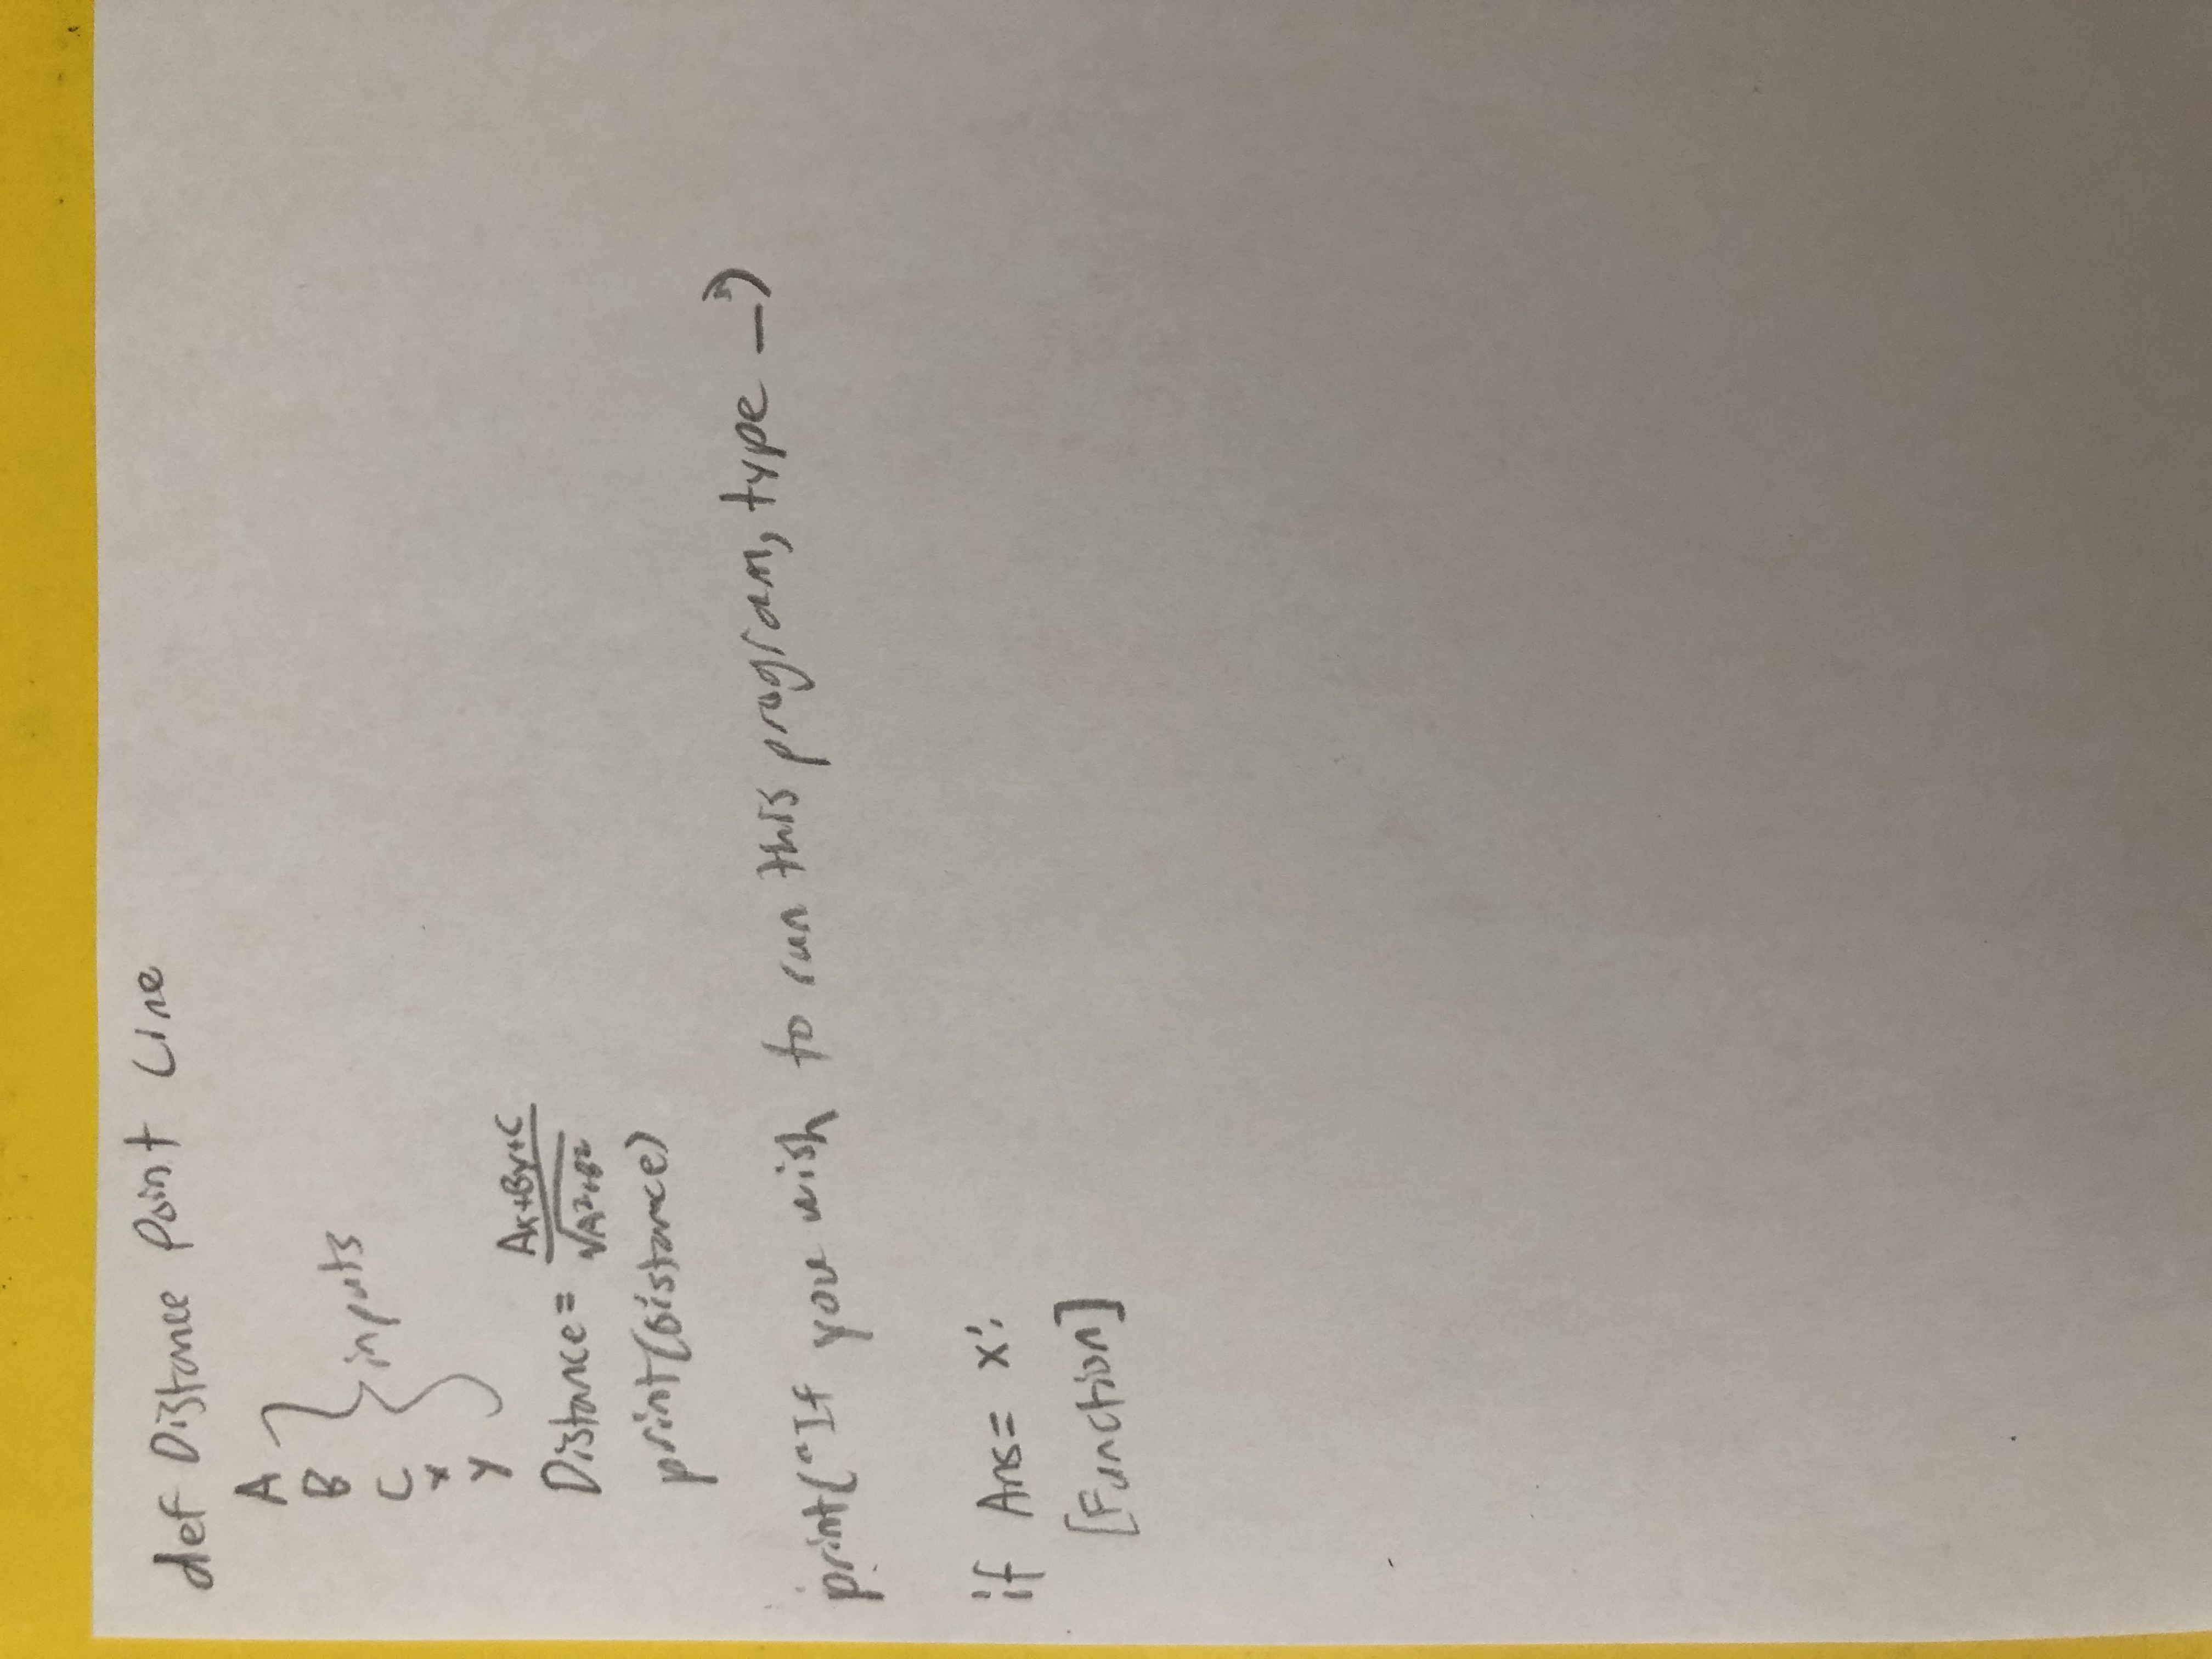 def Distance Point Line
A
B
C
x
y
inputs
Distance = Ax+By+C
√A²+B²
print(Distance)
print("If you wish to run this program, type _")
if Ans= x:
[Function]